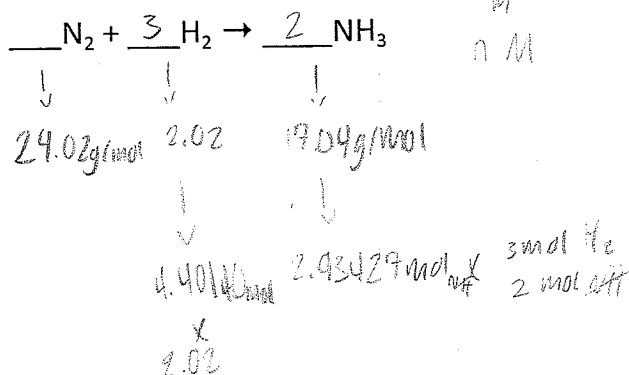 M
___N₂ + 3 H₂ → 2 NH₃
n M
24.02g/mol 2.02 17.04g/mol
4.40140mol 2.93427mol x 3mol H₂
2 mol
x
2.02